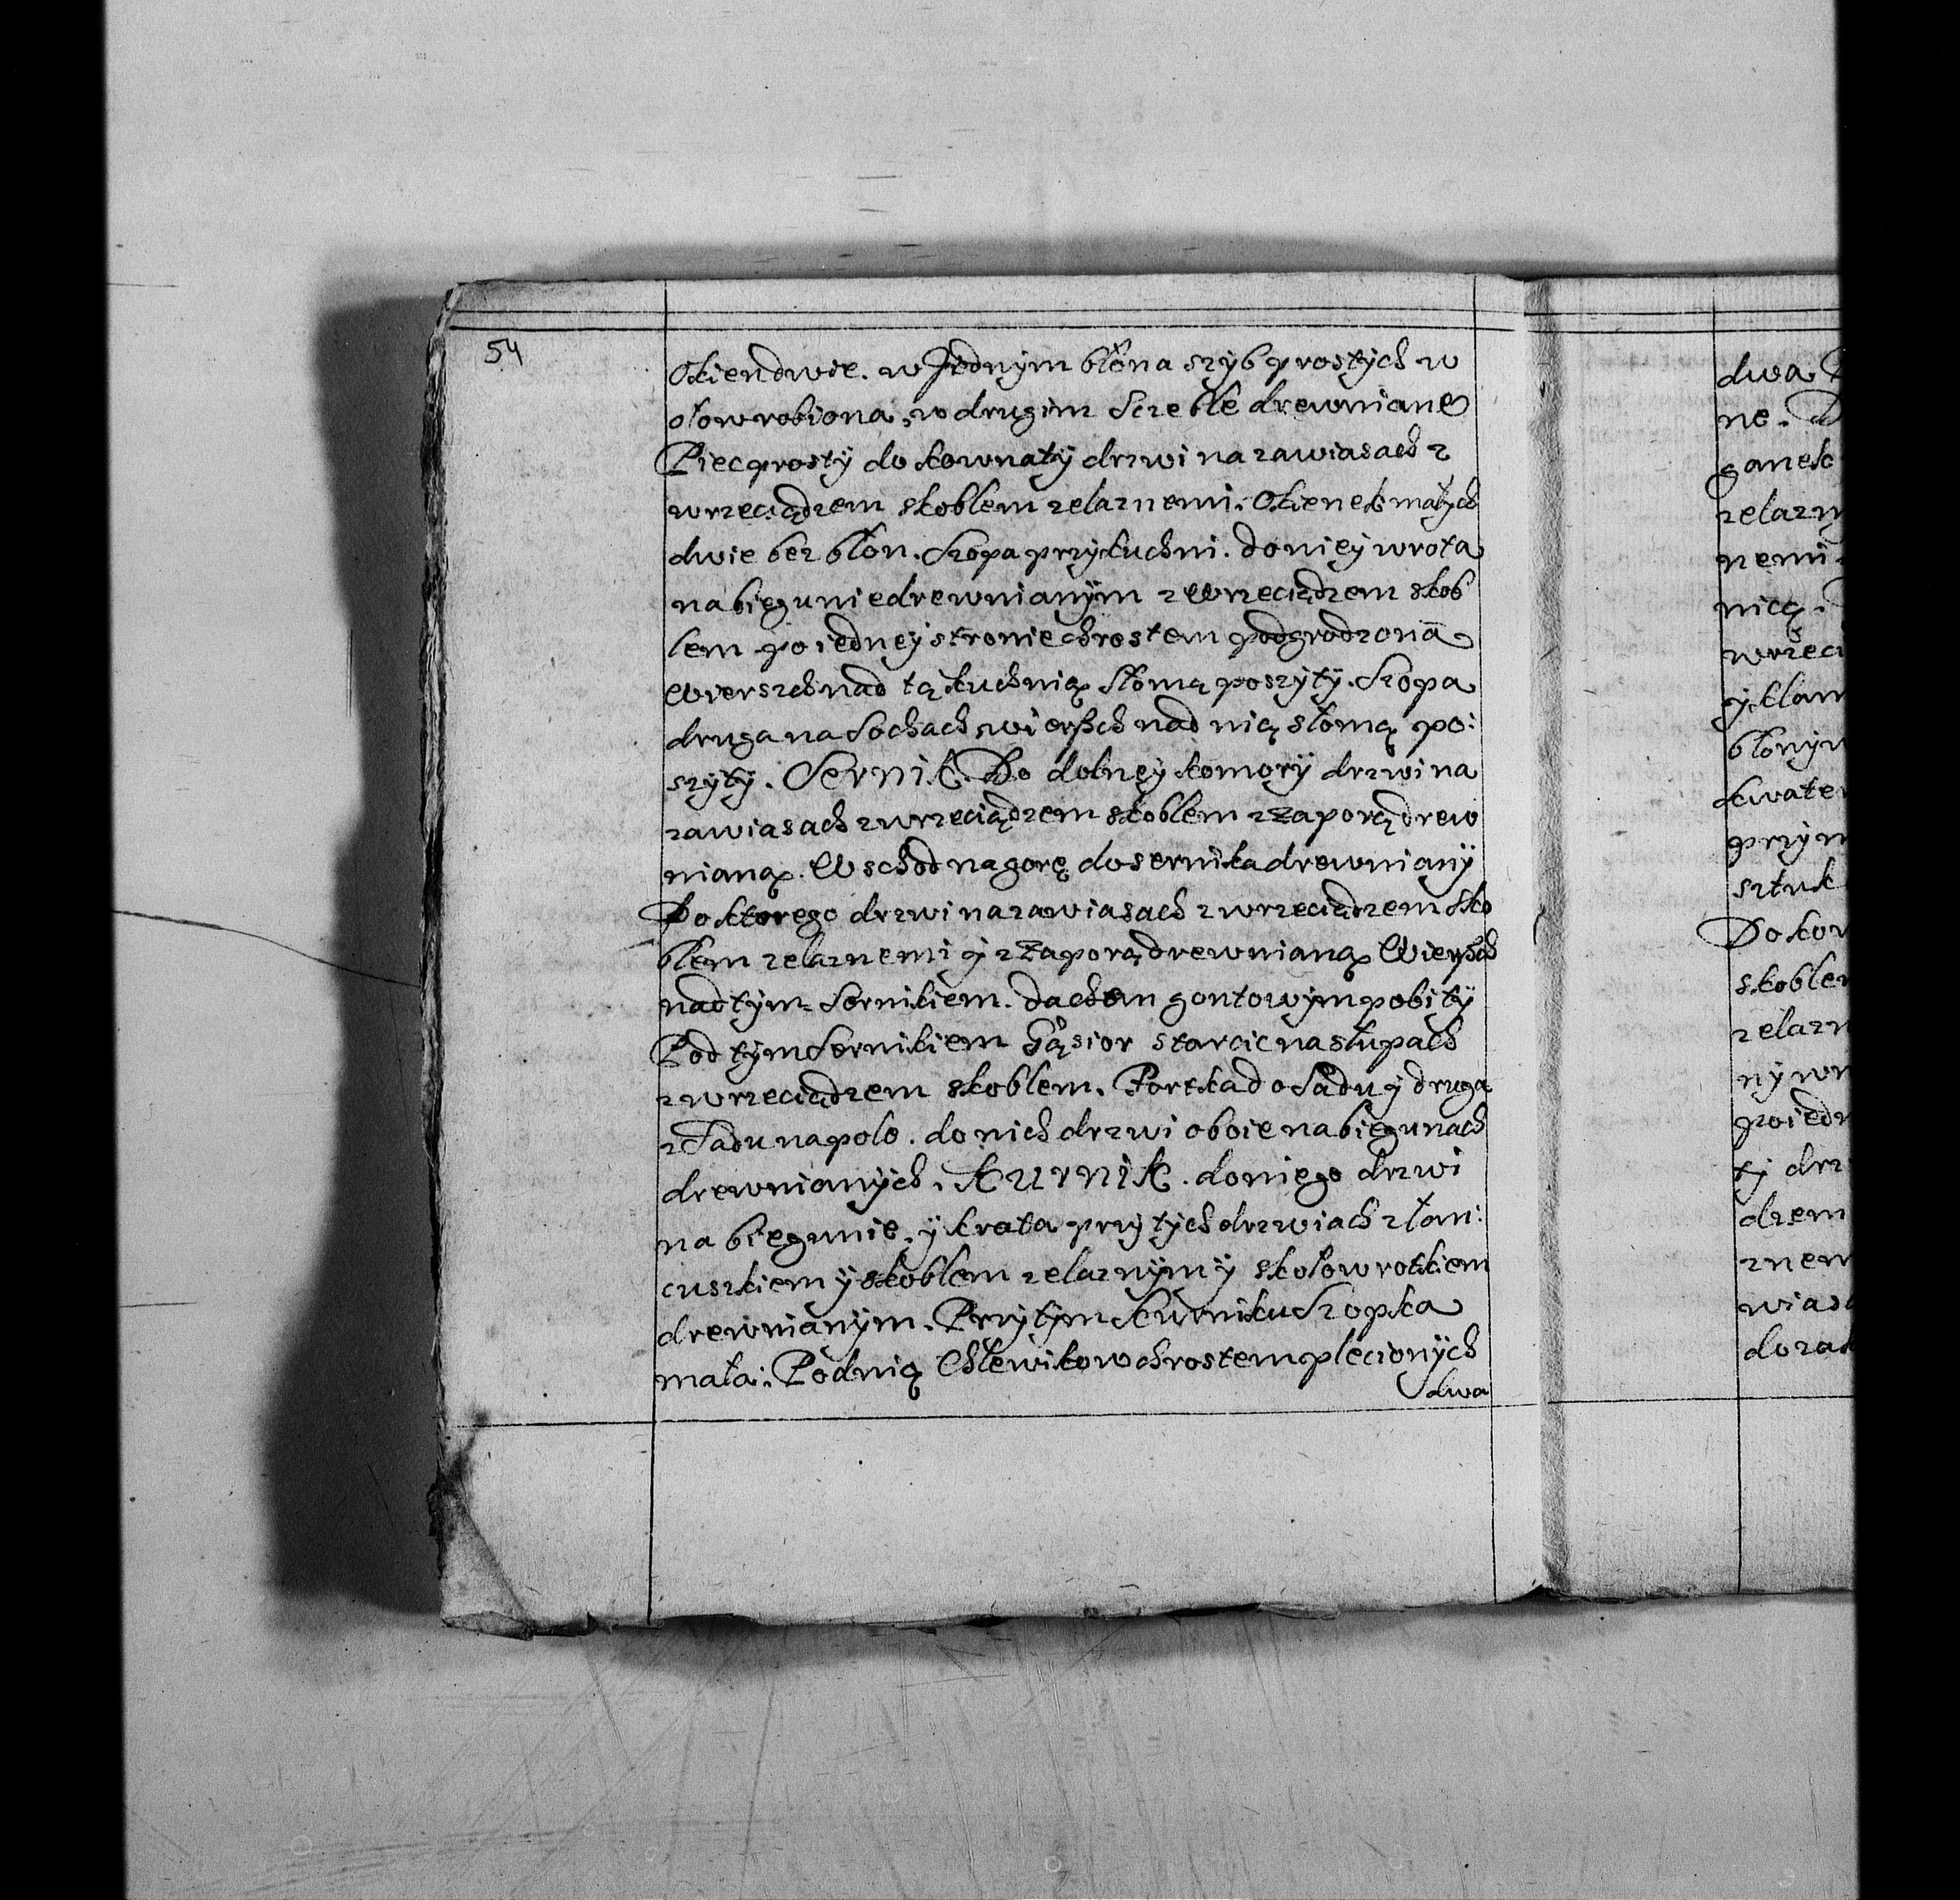 54
Okien dwie. w Jednym błona szyb prostych w
ołow robiona, w drugim Szeble drewniane
Piec prosty do kownaty drzwi na zawiasach z
wrzeciądzem skoblem zelaznemi. Okienek małych
dwie bez błon. Szopa przy kuchni. do niey wrota
na biegunie drewnianym z wrzeciądzem skob
lem po iedney stronie chrostem podgrodzona
Wierszch nad tą kuchnią słomą poszyty. Szopa
druga na Sochach, wierßch nad nią słomą po:
szyty. Sernik. Do dolney komory drzwi na
zawiasach z wrzeciądzem skoblem z zaporą drew
nianą. Wschod na gorę do sernika drewniany
Do ktorego drzwi na zawiasach z wrzeciądzem sko
blem zelaznemi y z zaporą drewnianą Wierßch
nad tym Sernikiem. dachem gontowym pobity
Pod tym Sernikiem Gąsior na słupach
z wrzeciądzem skoblem. Fortka do Sadu y druga
z Sadu na pole. do nich drzwi oboie na biegunach
drewnianych. Kurnik. do niego drzwi
na biegunie, y krata przy tych drzwiach z łan:
cuszkiem y skoblem zelaznym y skołowrotkiem
drewnianym. Przy tym Kurniku Szopka
mała. Pod nią Chlewikow chrostem plecionych
dwa
dwa
ne. D
ganek
zelazn
nemi
nicą.
wrzeci
y klam
błonyn
kwater
przy n
sztuk
Do kow
skoblem
zelazn
ny wr
poiedn
ty drz
dzem
znem
wias
do zak